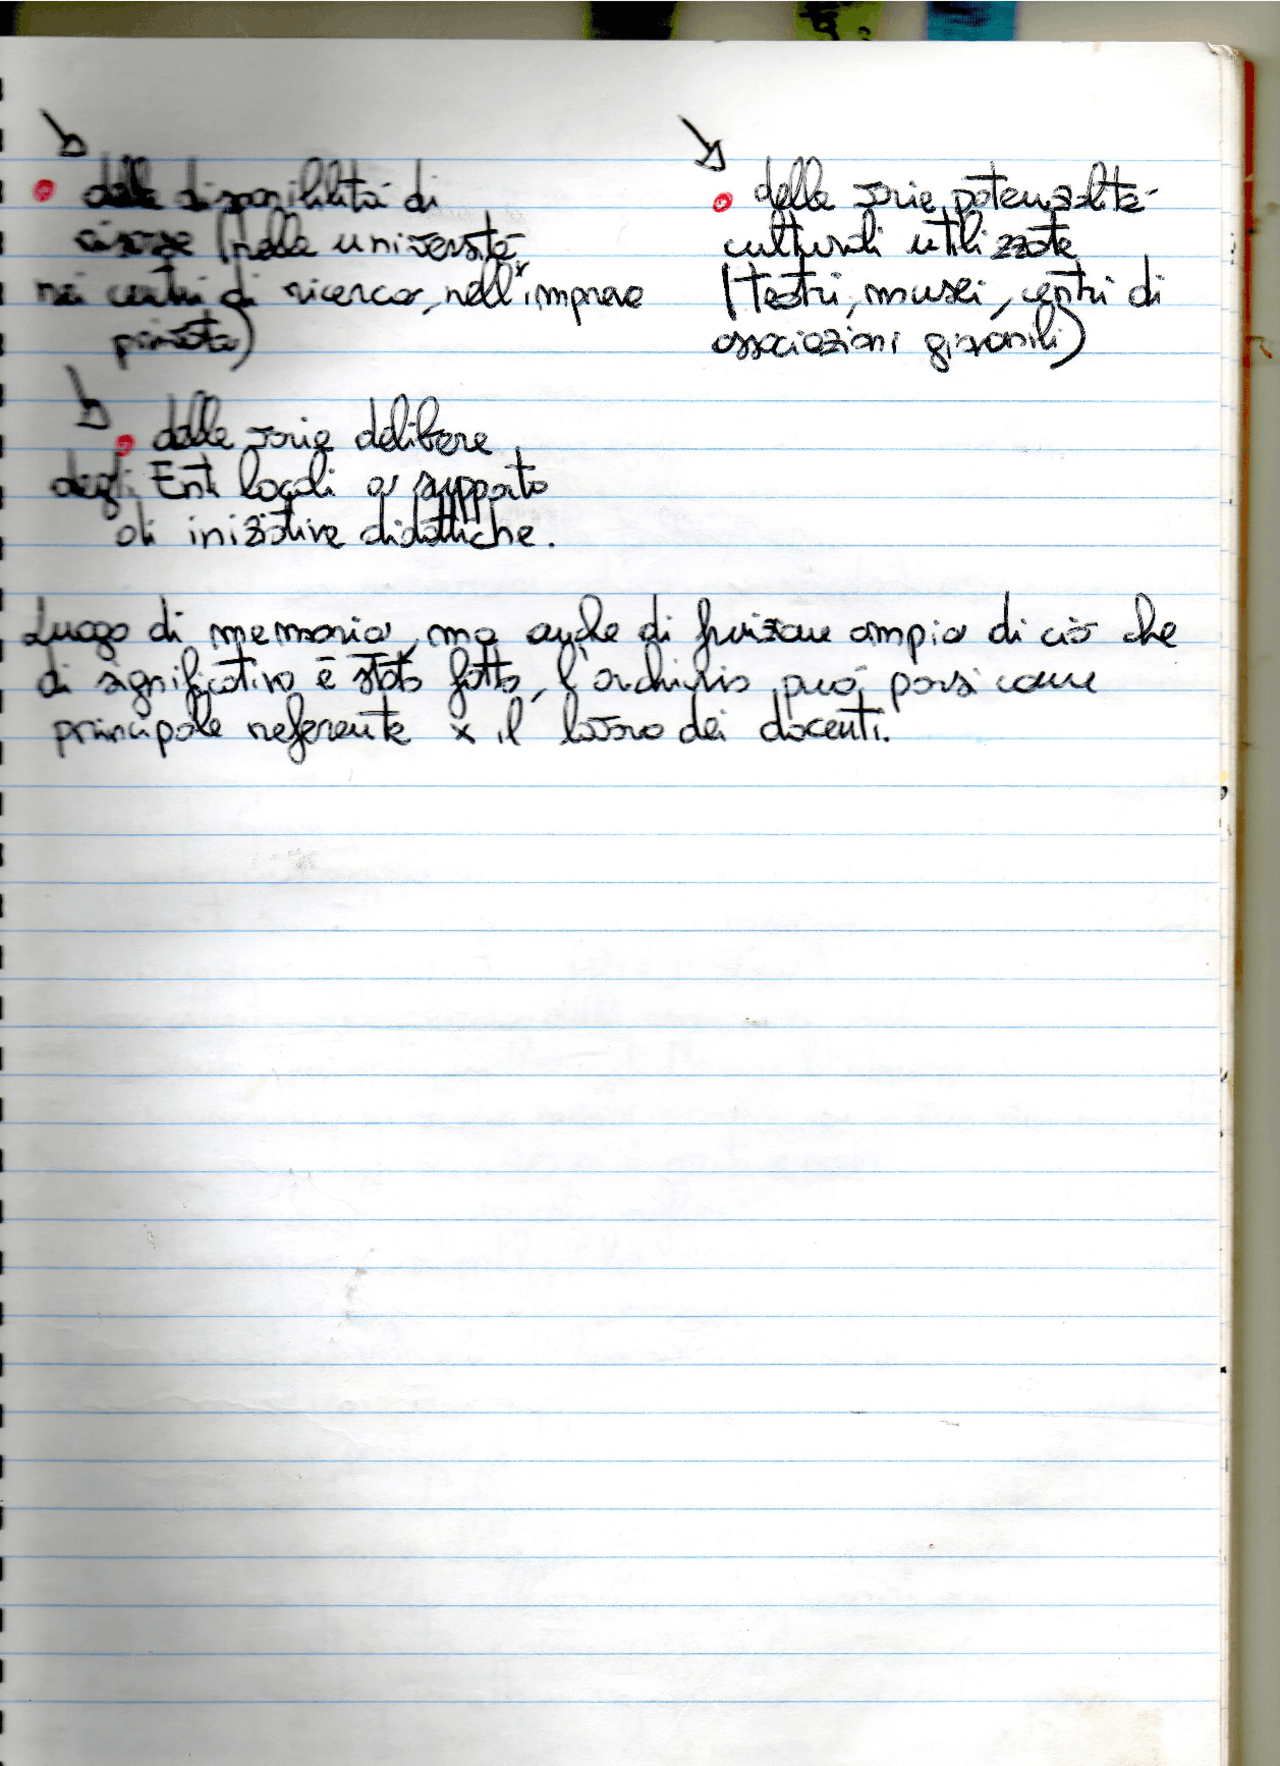 delle disponibilità di
risorse (nelle università
nei centri di ricerca, nell'impresa
privata)
delle varie potenzialità
culturali utilizzate
(teatri, musei, centri di
associazioni giovanili)
delle varie delibere
degli Enti locali a supporto
di iniziative didattiche.
Luogo di memoria, ma anche di fruizione ampia di ciò che
di significativo è stato fatto, l'archivio può porsi come
principale referente x il lavoro dei docenti.